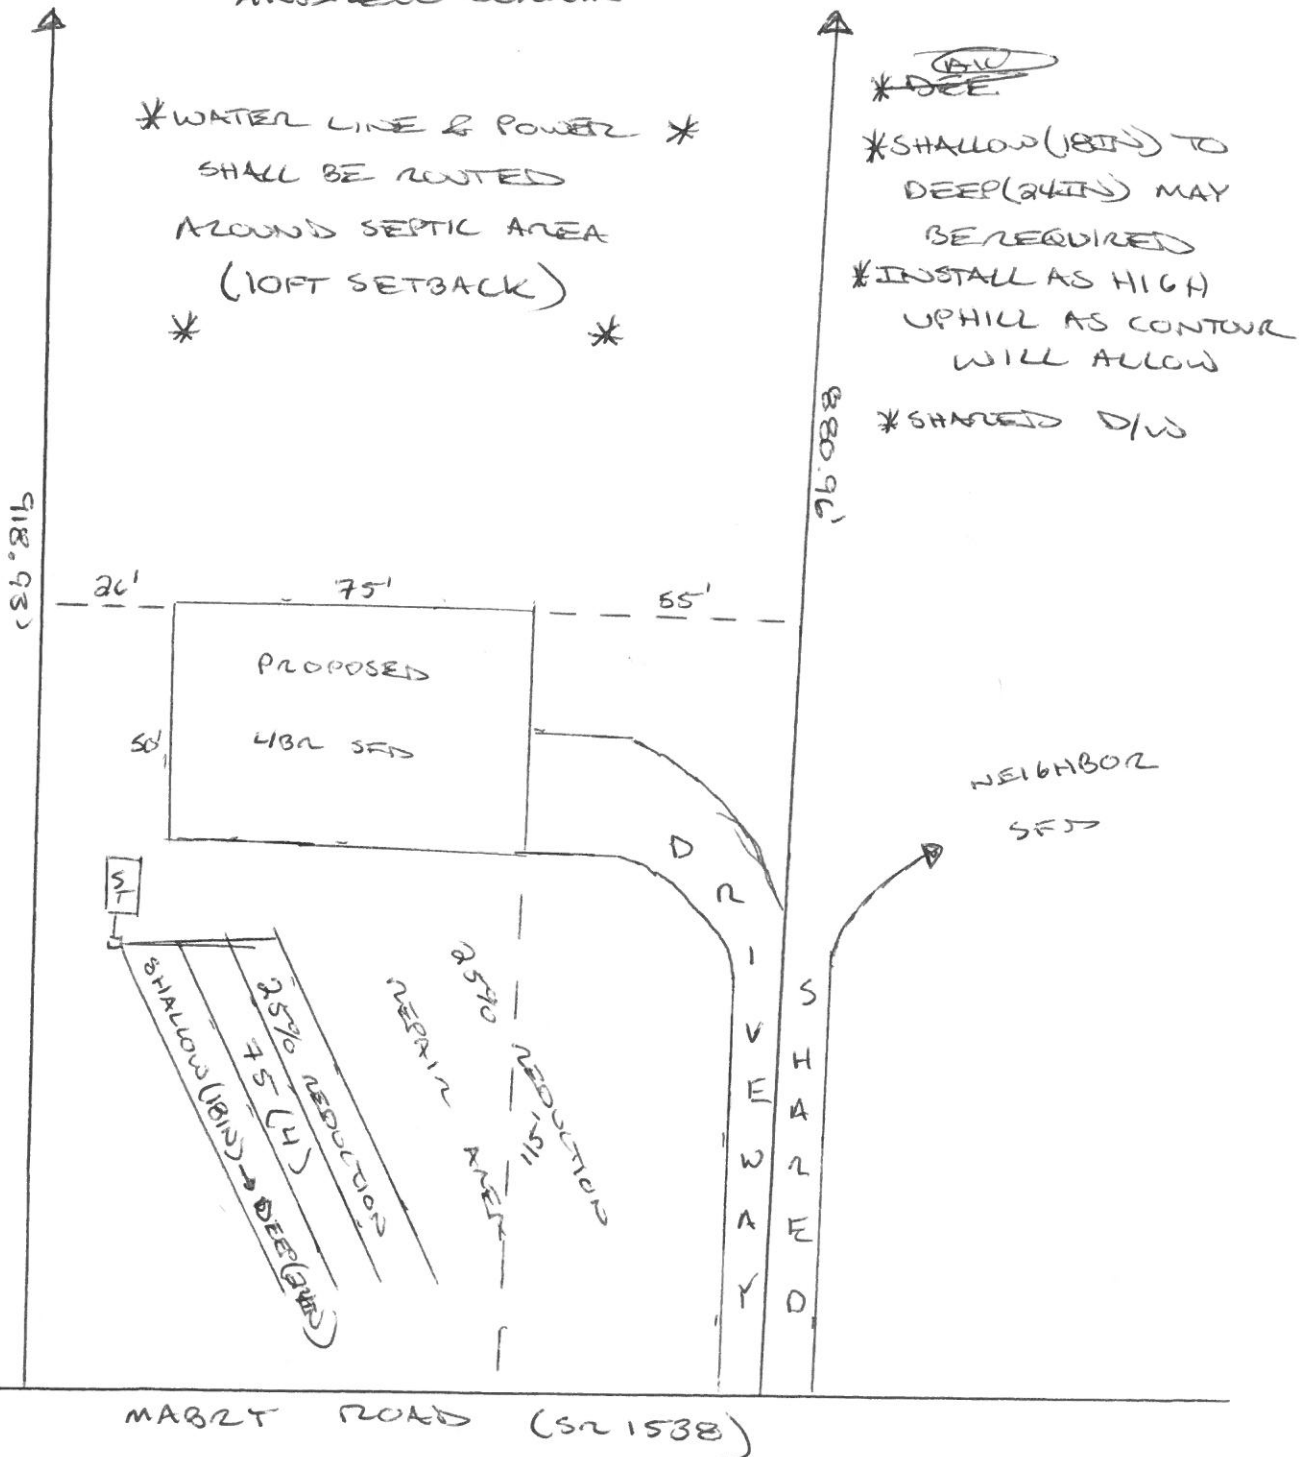 *WATER LINE & POWER *
SHALL BE ROUTED
AROUND SEPTIC AREA
(10FT SETBACK)
* *
AW
*DEE
*SHALLOW(18IN) TO
DEEP(24IN) MAY
BE REQUIRED
*INSTALL AS HIGH
UPHILL AS CONTOUR
WILL ALLOW
*SHARED D/W
918.93'
880.96'
26'
75'
55'
PROPOSED
4BR SFD
50'
NEIGHBOR
SFD
ST
SHALLOW(18IN)→DEEP(24IN)
75'(4)
25% REDUCTION
REPAIR AREA
25% REDUCTION
115'
DRIVEWAY
SHARED
MABRY ROAD (SR 1538)